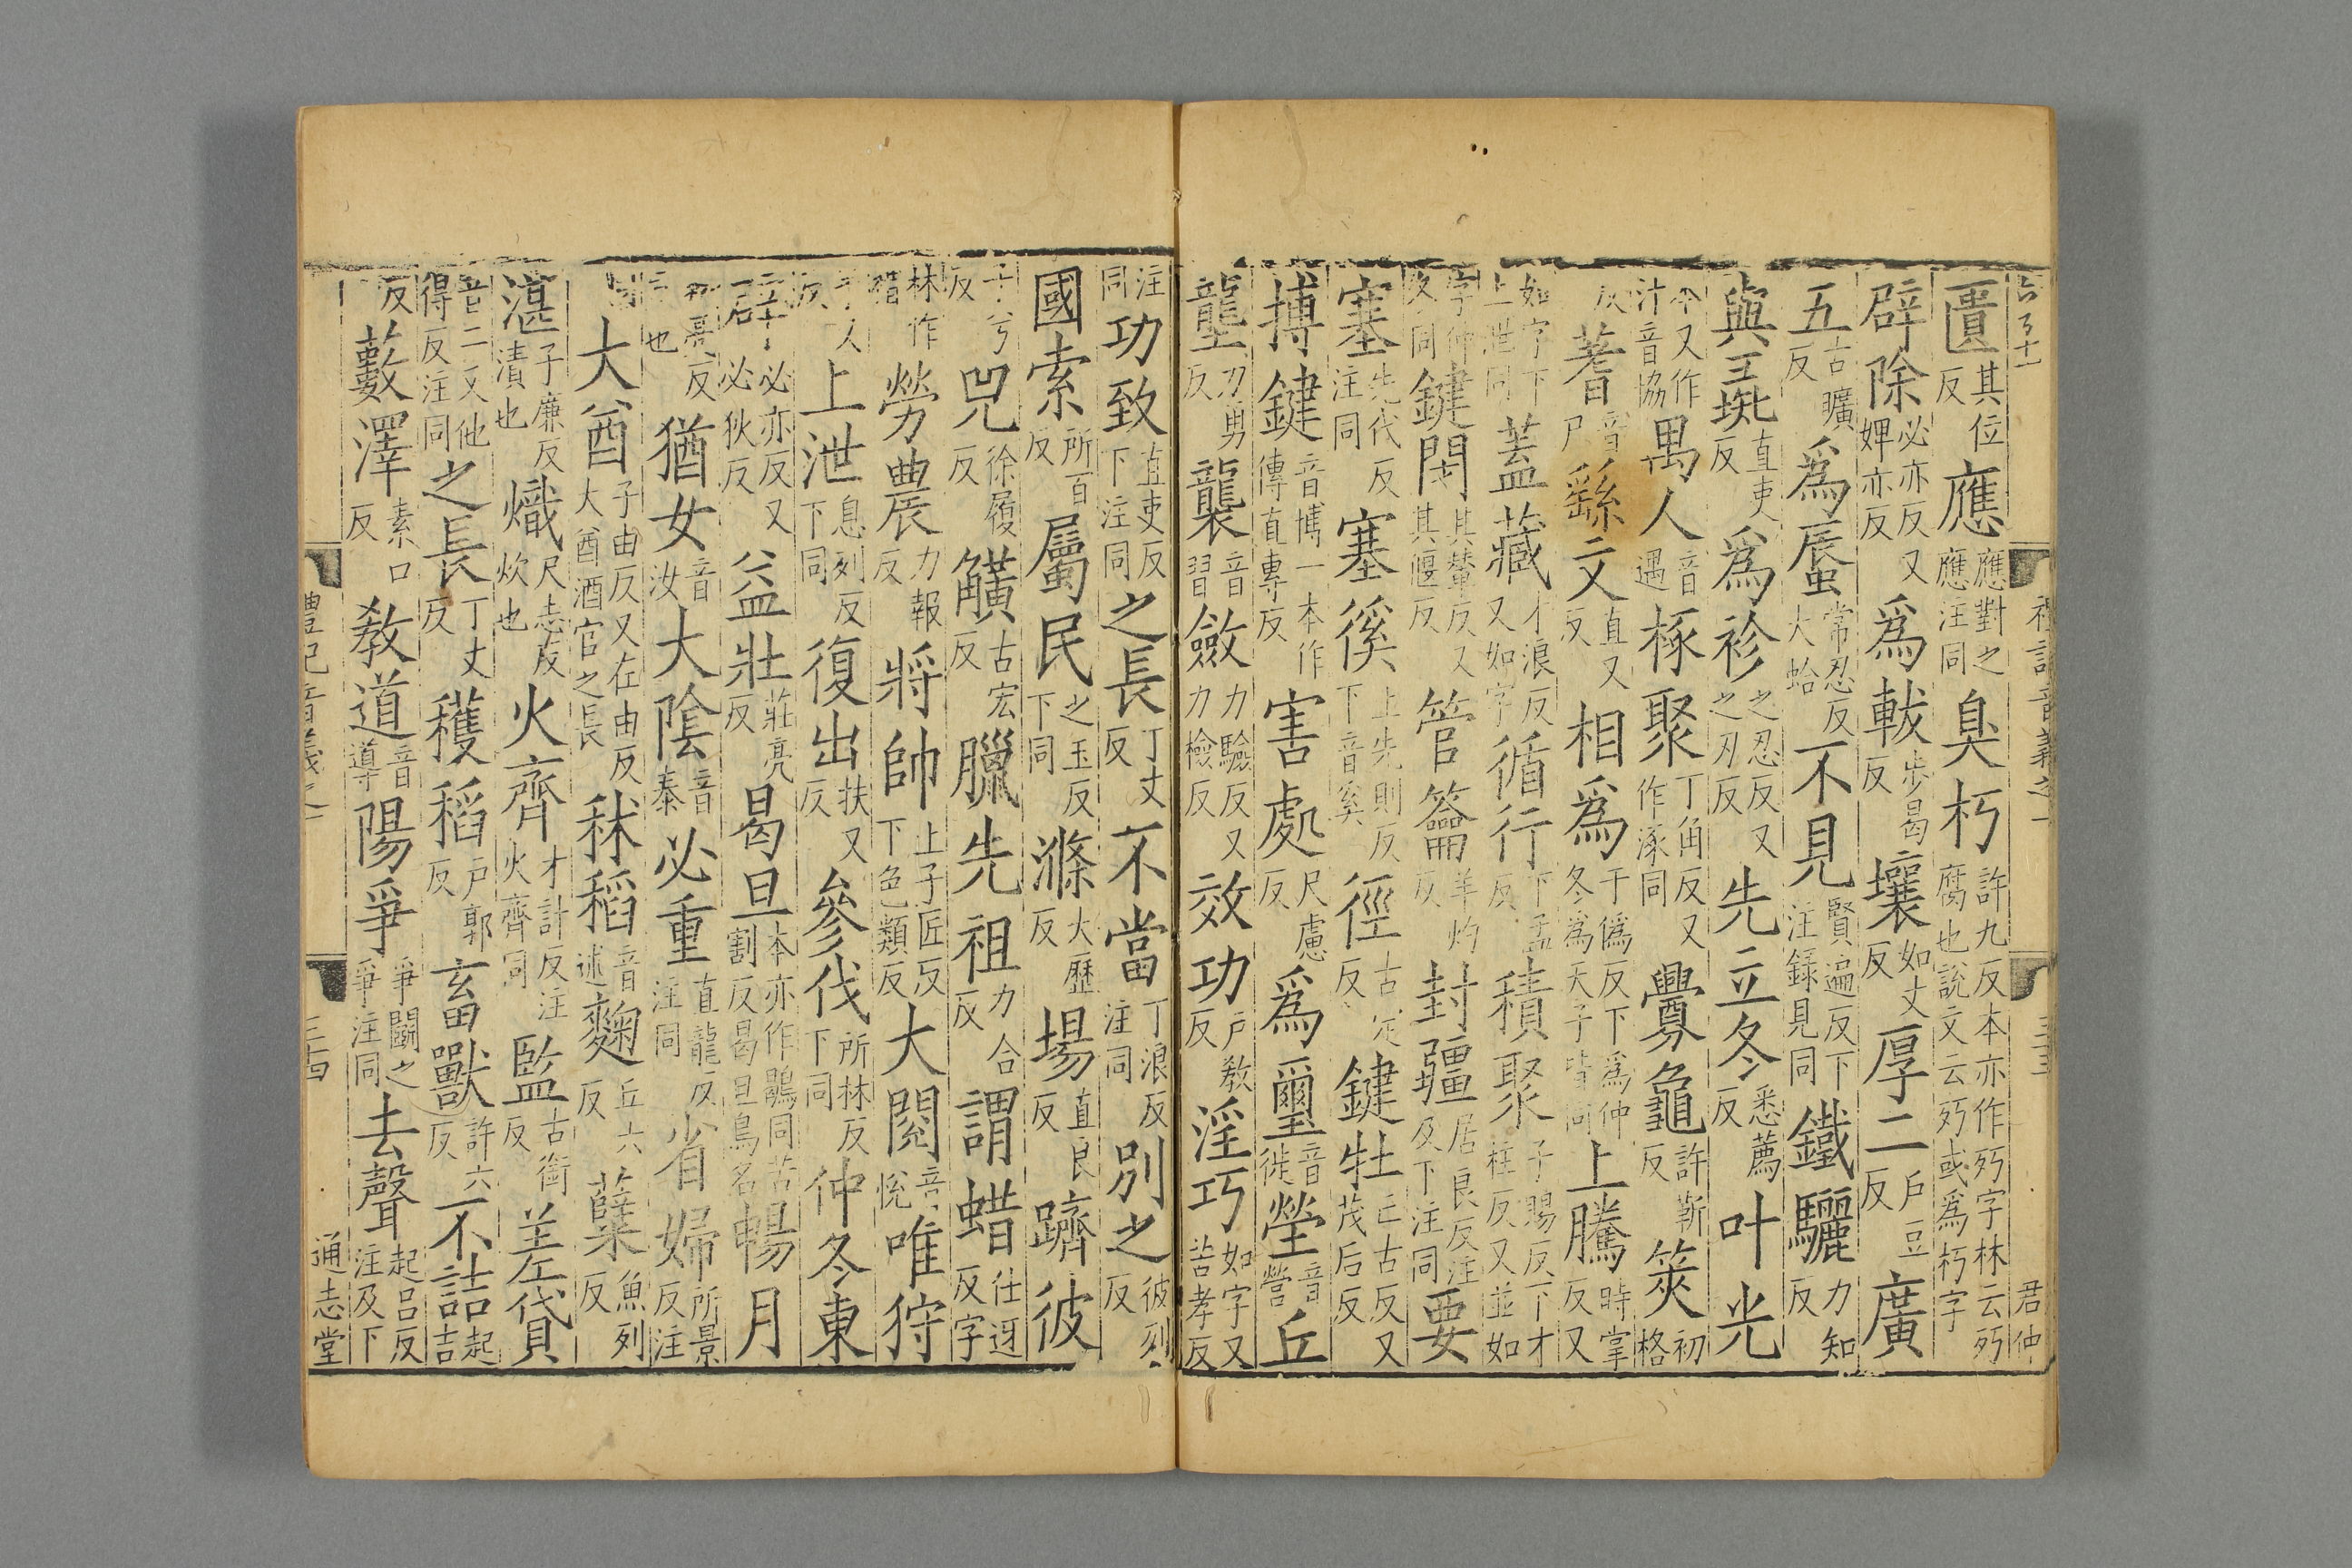 匱其位反應應對之應注同臭朽許九反本亦作㱙字林云㱙腐也說文云㱙或爲朽字
辟除必亦反又婢亦反爲軷步曷反壤如丈反厚二戶豆反廣
五古曠反爲蜃常忍反大蛤不見賢遍反下注録見同鐵驪力知反
與直吏反爲袗之忍反又之刃反先立冬悉薦反叶光
本又作汁音協禺人音遇椓聚丁角反又作涿同釁龜許靳反筴初格
反蓍音尸繇文直又反相爲于僞反下爲仲冬爲天子皆同上騰時掌反又
如字下上泄同蓋藏才浪反又如字循行下孟反積聚子賜反下才柱反又並如
字仲反同鍵閉其輦反又其偃反管籥羊灼反封疆居良反注及下注同要
塞先代反注同塞徯上先則反下音奚徑古定反鍵牡亡古反又茂后反
搏鍵音博一本作傳直專反害處尺慮反爲璽音徙塋音營丘
壟力勇反襲音習斂力驗反又力檢反效功戶教反淫巧如字又苦孝反
禮記音義之一
君仲
注同功致直吏反下注同之長丁丈反不當丁浪反注同別之彼列反
國索所百反屬民之玉反下同滌大歷反場直良反躋彼
子兮反兕徐履反觵古宏反臘先祖力合反謂蜡仕迓反字
林作䄍勞農力報反將帥上子匠反下色類反大閱音悅唯狩
手又反上泄息列反下同復出扶又反參伐所林反下同仲冬東
辟必亦反又必狄反益壯莊亮反曷旦本亦作鶡同苦割反曷旦鳥名暢月
猶女音汝大陰音泰必重直龍反注同省婦所景反注
同大酋子由反又在由反大酋酒官之長秫稻音述麴丘六反糵魚列反
湛子廉反漬也熾尺志反炊也火齊才計反注火齊同監古銜反差貸
音二又他得反注同之長丁丈反穫稻戶郭反畜獸許六反不詰起吉
反藪澤素口反教道音導陽爭爭鬬之爭注同去聲起呂反注及下
禮記音義之一
通志堂